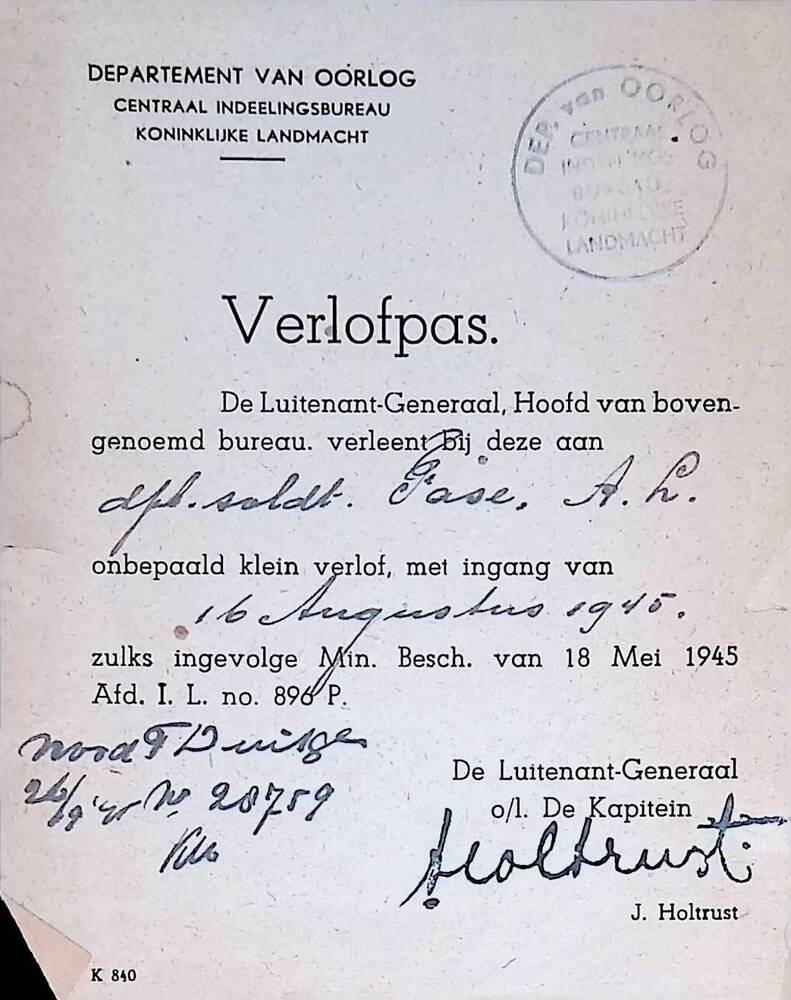 DEPARTEMENT VAN OORLOG
CENTRAAL INDEELINGSBUREAU
KONINKLIJKE LANDMACHT
DEP. van OORLOG
CENTRAAL
INDEELINGS
BUREAU
KONINKLIJKE
LANDMACHT
Verlofpas.
De Luitenant-Generaal, Hoofd van boven-
genoemd bureau. verleent bij deze aan
dpl. soldt. Fase, A. L.
onbepaald klein verlof, met ingang van
16 Augustus 1945.
zulks ingevolge Min. Besch. van 18 Mei 1945
Afd. I. L. no. 896 P.
26/9 '45 No 28759
De Luitenant-Generaal
o/l. De Kapitein
Holtrust
J. Holtrust
K 840